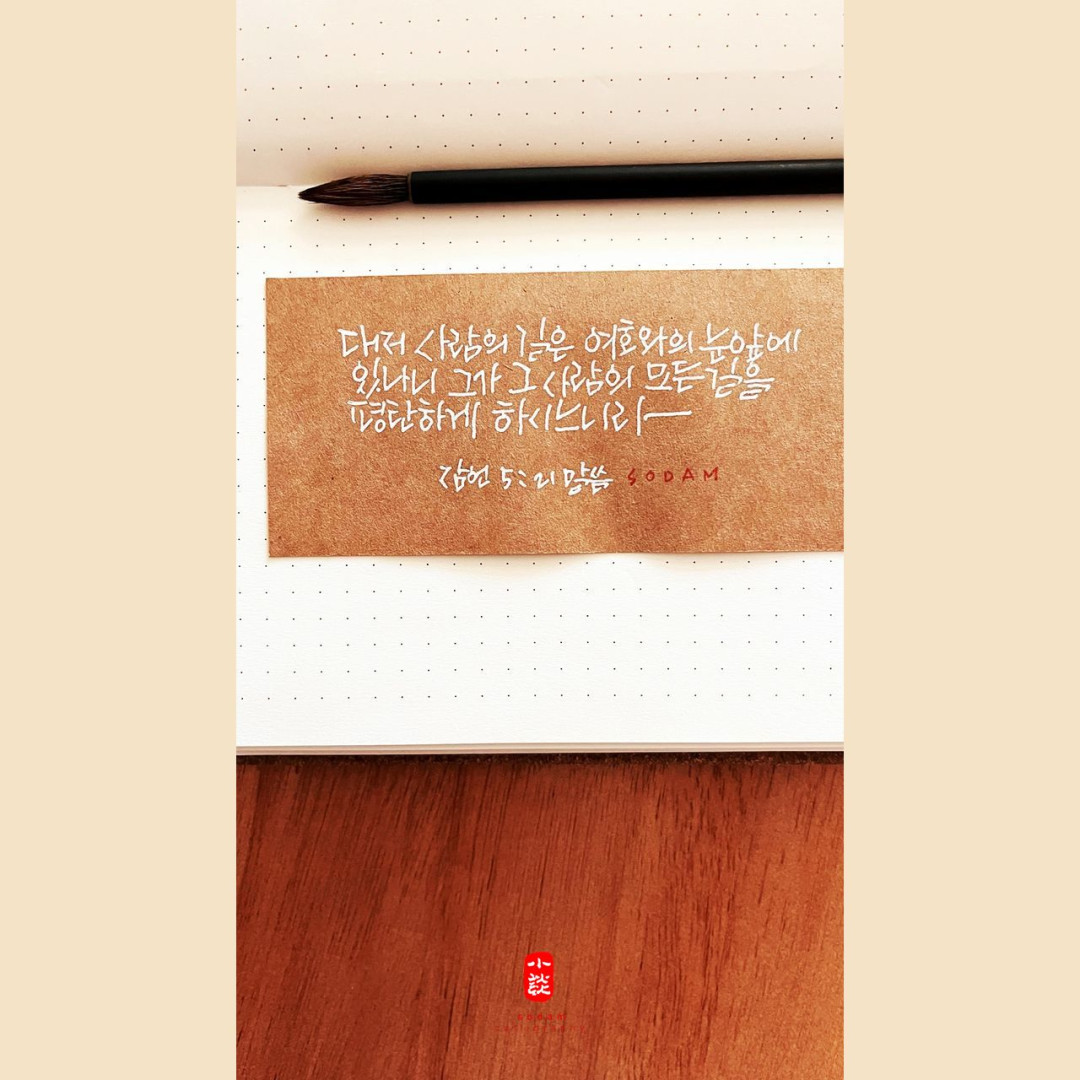 대저 사람의 길은 여호와의 눈앞에
있나니 그가 그 사람의 모든 길을
평탄하게 하시느니라
잠언 5:21 말씀 SODAM
小
談
SODAM